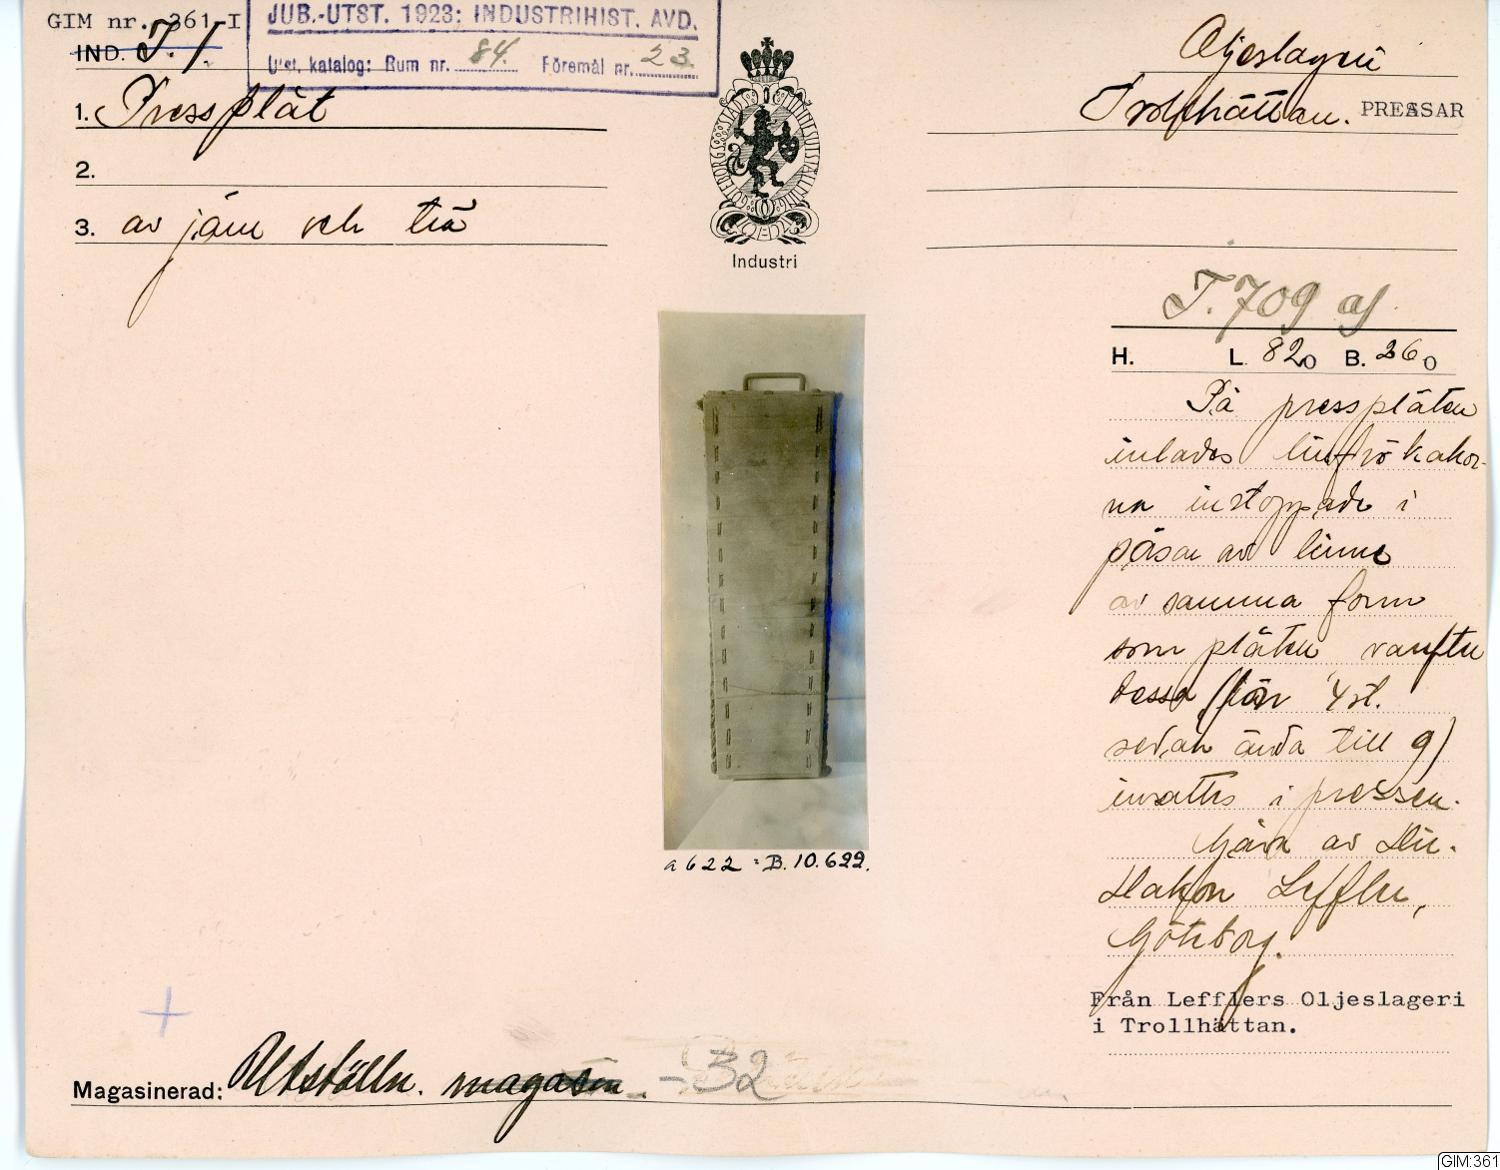 GIM nr. 361-I
IND. T. 1.
JUB.-UTST. 1923: INDUSTRIHIST. AVD.
Utst. katalog: Rum nr. 84. Föremål nr. 23.
1. Pressplåt
2.
3. av järn och trä
GÖTEBORGS STADS JUBILEUMSUTSTÄLLNING
Industri
Oljeslageri
Trollhättan. PRESSAR
T. 709 a)
H. L. 820 B. 260
På pressplåten
inlades linfrökakor-
na instoppade i
påsar av linne
av samma form
som plåten varefter
dessa (förr 4 st.
sedan ända till 9)
insattes i pressen.
Gåva av Dir.
Hakon Leffler,
Göteborg.
Från Lefflers Oljeslageri
i Trollhättan.
a 622 = B. 10.622.
Magasinerad: Utställn. magasin - B2
GIM:361